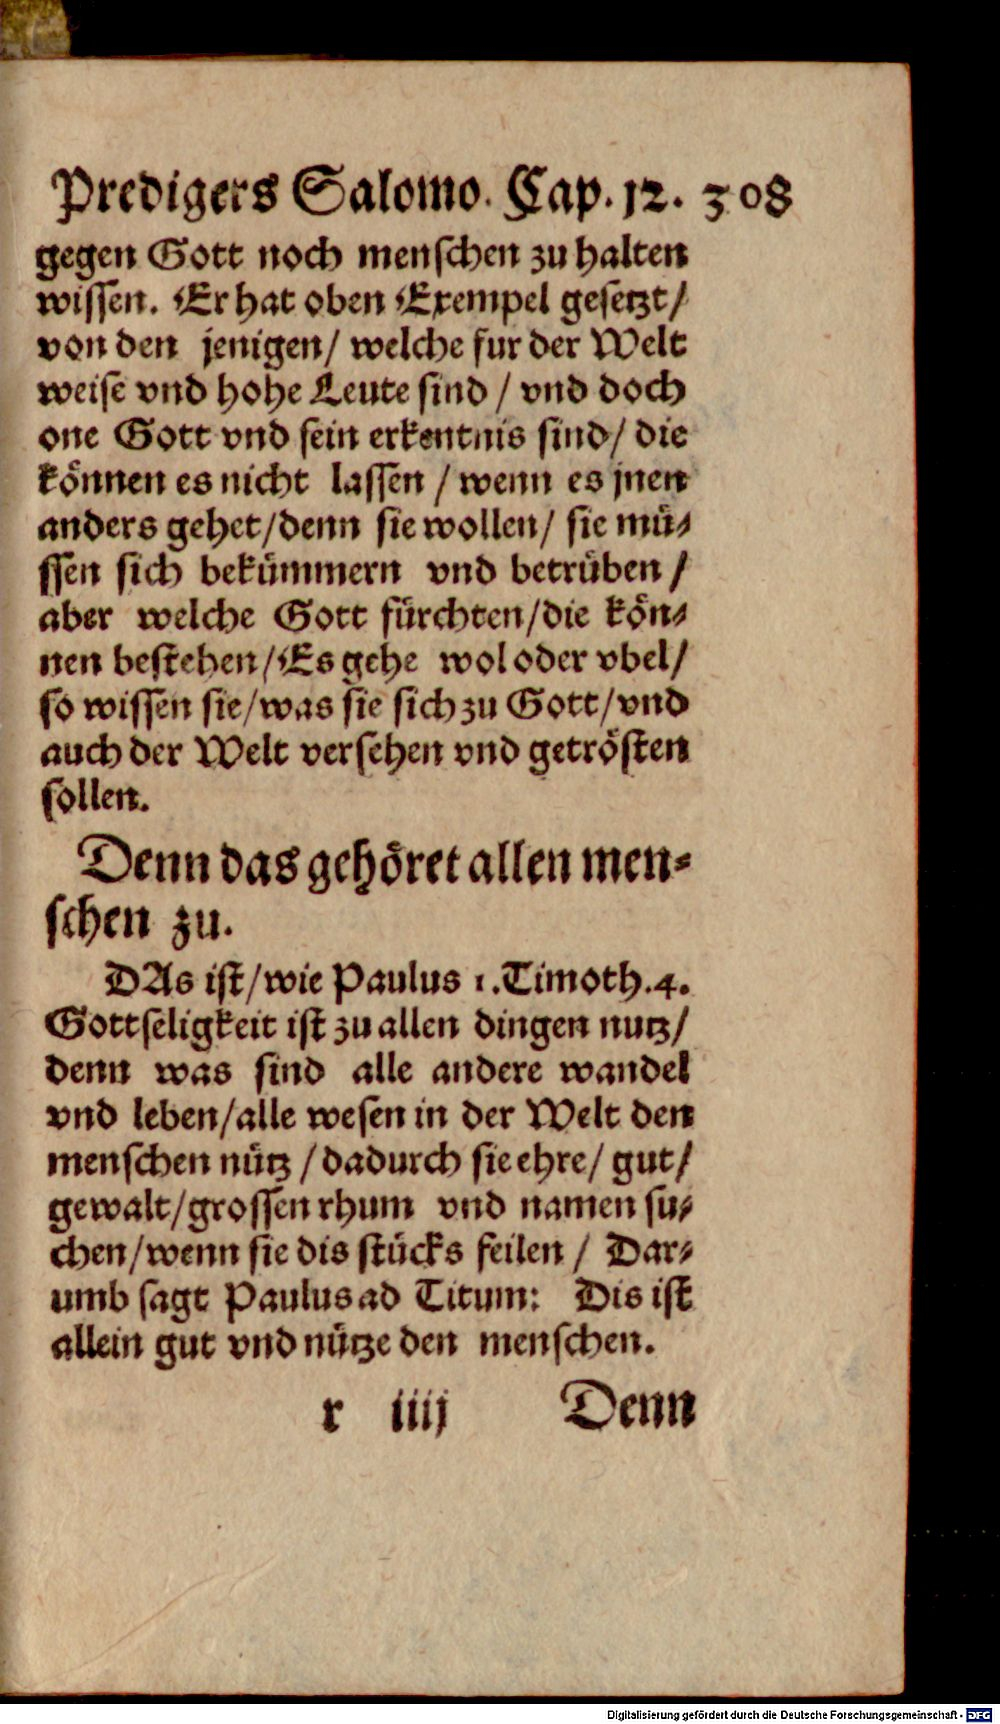 Predigers Salomo. Cap. 12. 308
gegen Gott noch menschen zu halten
wissen. Er hat oben Exempel gesetzt/
von den jenigen/ welche fur der Welt
weise vnd hohe Leute sind / vnd doch
one Gott vnd sein erkentnis sind/ die
können es nicht lassen / wenn es jnen
anders gehet/denn sie wollen/ sie mü-
ssen sich bekümmern vnd betrüben/
aber welche Gott fürchten/die kön-
nen bestehen/Es gehe wol oder vbel/
so wissen sie/was sie sich zu Gott/vnd
auch der Welt versehen vnd getrösten
sollen.
Denn das gehöret allen men-
schen zu.
DAs ist/wie Paulus 1.Timoth.4.
Gottseligkeit ist zu allen dingen nutz/
denn was sind alle andere wandel
vnd leben/alle wesen in der Welt den
menschen nütz /dadurch sie ehre/ gut/
gewalt/grossen rhum vnd namen su-
chen/wenn sie dis stücks feilen / Dar-
umb sagt Paulus ad Titum: Dis ist
allein gut vnd nütze den menschen.
r iiij Denn
Digitalisierung gefördert durch die Deutsche Forschungsgemeinschaft - DFG